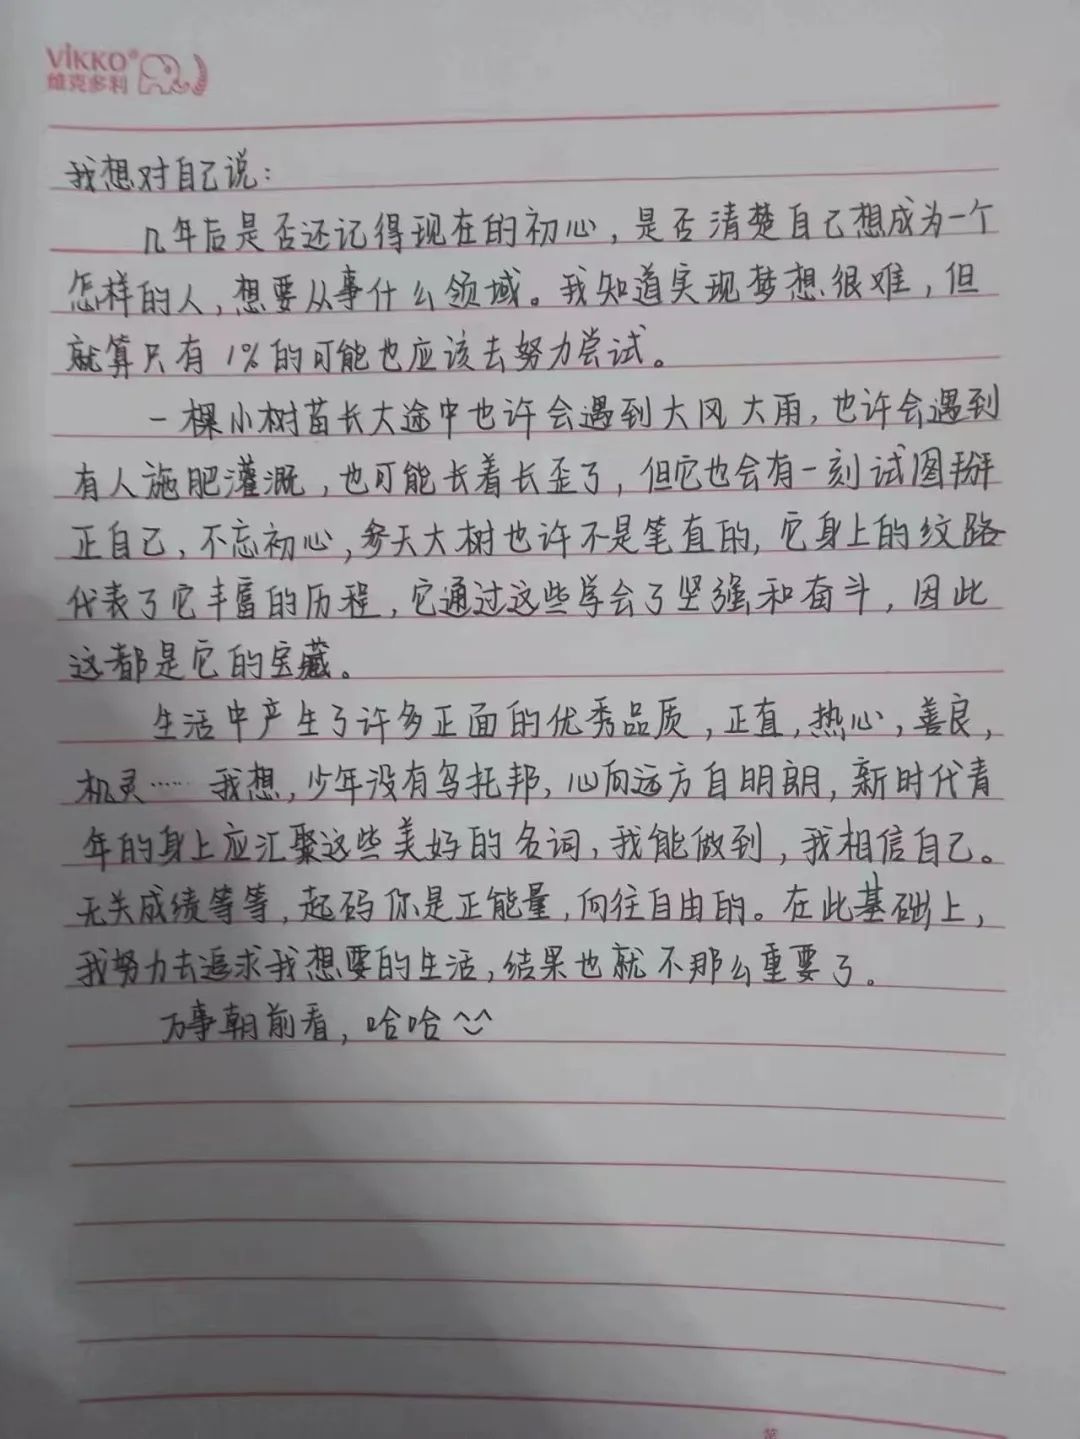 VIKKO®
维克多利
我想对自己说：
几年后是否还记得现在的初心，是否清楚自己想成为一个
怎样的人，想要从事什么领域。我知道实现梦想很难，但
就算只有1%的可能也应该去努力尝试。
一棵小树苗长大途中也许会遇到大风大雨，也许会遇到
有人施肥灌溉，也可能长着长歪了，但它也会有一刻试图掰
正自己，不忘初心，参天大树也许不是笔直的，它身上的纹路
代表了它丰富的历程，它通过这些学会了坚强和奋斗，因此
这都是它的宝藏。
生活中产生了许多正面的优秀品质，正直，热心，善良，
机灵……我想，少年没有乌托邦，心向远方自明朗，新时代青
年的身上应汇聚这些美好的名词，我能做到，我相信自己。
无关成绩等等，起码你是正能量，向往自由的。在此基础上，
我努力去追求我想要的生活，结果也就不那么重要了。
万事朝前看，哈哈^‿^